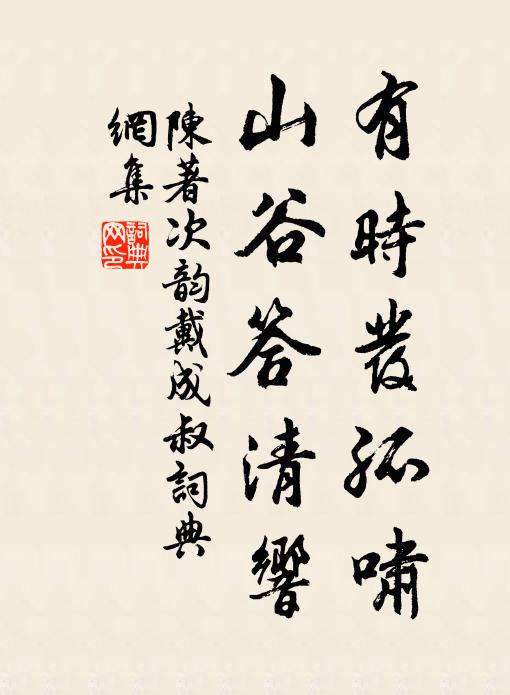 有時發孤嘯
山谷答清響
陳著次韵戴成叔詞典
網集
詞典
网印